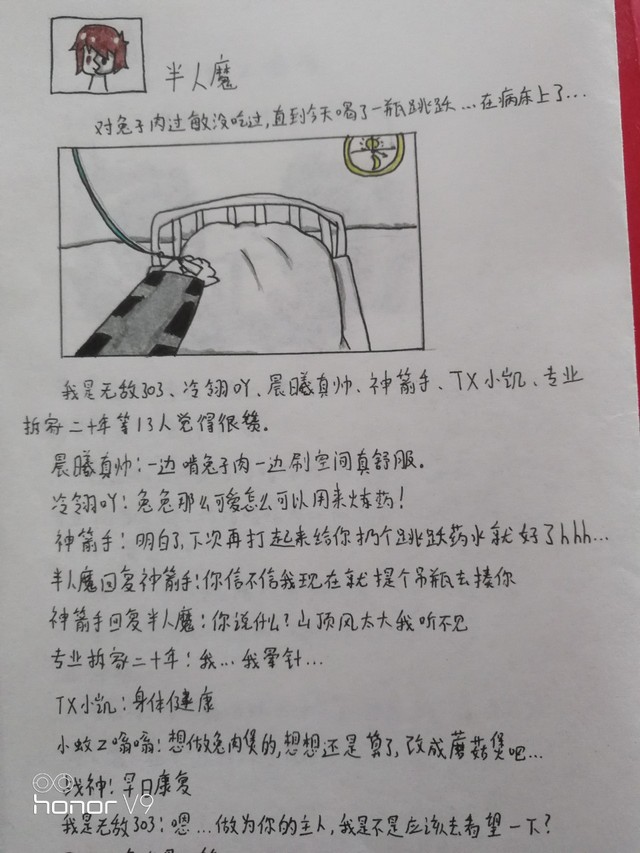 半人魔
对兔子肉过敏没吃过,直到今天喝了一瓶跳跃...在病床上了...
我是无敌303、冷翎吖、晨曦真帅、神箭手、TX小凯、专业
拆家二十年等13人觉得很赞。
晨曦真帅:一边啃兔子肉一边刷空间真舒服。
冷翎吖:兔兔那么可爱怎么可以用来炼药!
神箭手:明白了,下次再打起来给你扔个跳跃药水就好了hhh...
半人魔回复神箭手:你信不信我现在就提个吊瓶去揍你
神箭手回复半人魔:你说什么?山顶风太大我听不见
专业拆家二十年:我...我晕针...
TX小凯:身体健康
小蚊Z嗡嗡:想做兔肉煲的,想想还是算了,改成蘑菇煲吧...
战神:早日康复
我是无敌303:嗯...做为你的主人,我是不是应该去看望一下?
honor V9